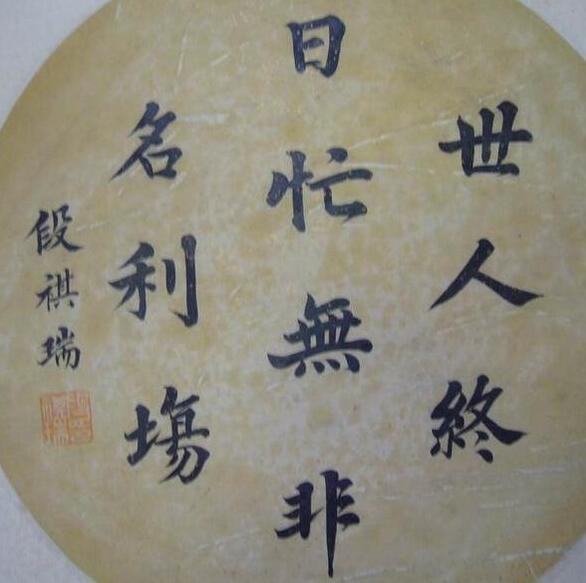 世人終
日忙無非
名利場
段祺瑞